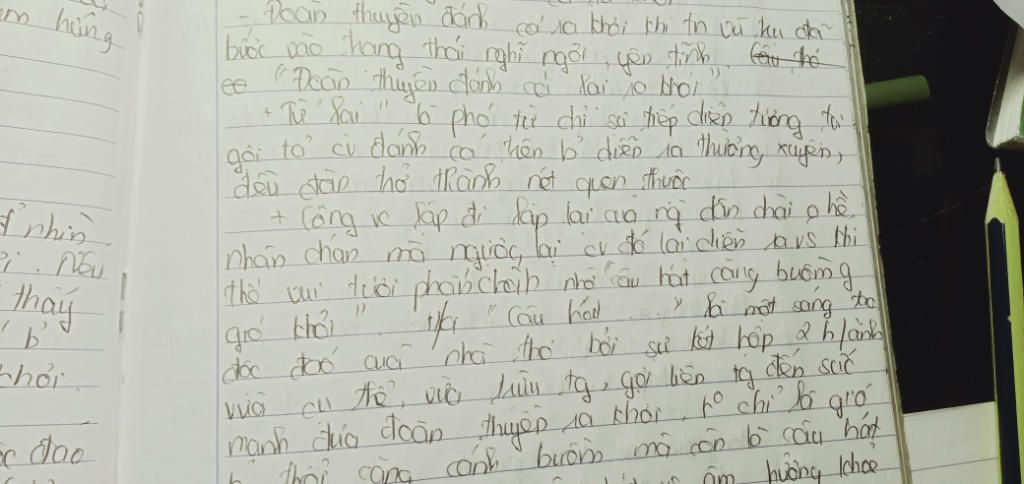 m hùng
- Đoàn thuyền đánh cá ra khơi khi tn vũ trụ đã
bước vào trạng thái nghỉ ngơi, yên tĩnh. Câu thơ
"Đoàn thuyền đánh cá lại ra khơi"
+ Từ "lại" là phó từ chỉ sự tiếp diễn tương tự
gợi tả cv đánh cá trên b' diễn ra thường xuyên,
đều đặn trở thành nét quen thuộc
+ Công vc lặp đi lặp lại của ng dân chài o hề
nhàm chán mà ngược lại cv đó lại diễn ra vs khí
thế vui tươi phấn chấn nhờ "câu hát căng buồm
gió khơi". H/a "Câu hát..." là một sáng tạo
độc đáo của nhà thơ bởi sự kết hợp 2 h/ảnh
vừa cụ thể, vừa trừu tg, gợi liên tg đến sức
mạnh đưa đoàn thuyền ra khơi, ko chỉ là gió
thổi căng cánh buồm mà còn là câu hát
âm hưởng khoẻ
nhìn
Nếu
thấy
b'
chơi.
đao